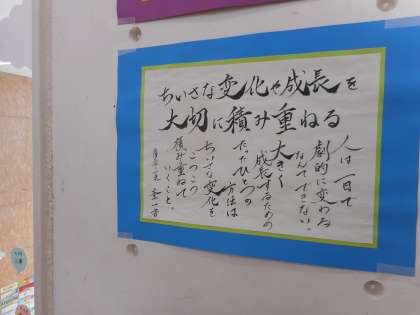 ちいさな変化や成長を
大切に積み重ねる
人は一日で
劇的に変わる
なんてできない。
大きく
成長するための
たったひとつの
方法は
ちいさな変化を
コツコツ
積み重ねて
いくこと。